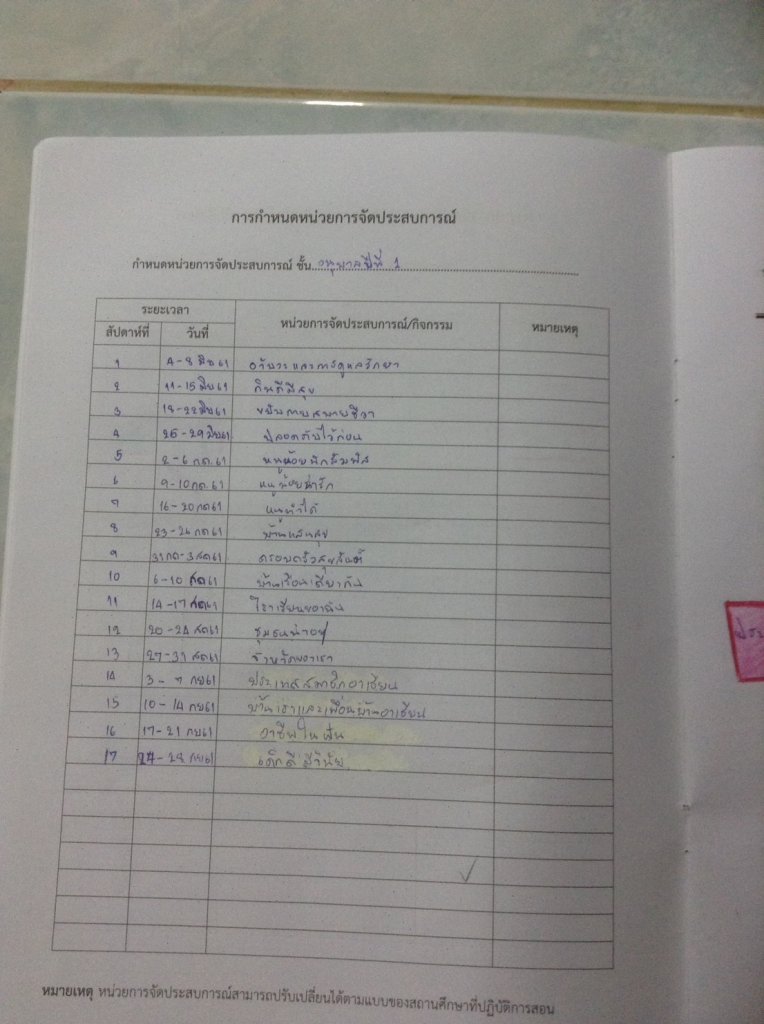 การกำหนดหน่วยการจัดประสบการณ์
กำหนดหน่วยการจัดประสบการณ์ ชั้น อนุบาลปีที่ 1
ระยะเวลา หน่วยการจัดประสบการณ์/กิจกรรม หมายเหตุ
สัปดาห์ที่ วันที่
1 4-8 มิย 61 อวัยวะและการดูแลรักษา
2 11-15 มิย 61 กินดีมีสุข
3 18-22 มิย 61 ขยับกายสบายชีวา
4 25-29 มิย 61 ปลอดภัยไว้ก่อน
5 2-6 กค. 61 หนูน้อยนักสัมผัส
6 9-10 กค 61 หนูน้อยน่ารัก
7 16-20 กค 61 หนูทำได้
8 23-26 กค 61 บ้านแสนสุข
9 31 กค-3 สค 61 ครอบครัวสุขสันต์
10 6-10 สค 61 บ้านเรือนเคียงกัน
11 14-17 สค 61 โรงเรียนของฉัน
12 20-24 สค 61 ชุมชนน่าอยู่
13 27-31 สค 61 จังหวัดของเรา
14 3-7 กย 61 ประเทศสมาชิกอาเซียน
15 10-14 กย 61 บ้านเราและเพื่อนบ้านอาเซียน
16 17-21 กย 61 อาชีพในฝัน
17 24-28 กย 61 เด็กดีมีวินัย
หมายเหตุ หน่วยการจัดประสบการณ์สามารถปรับเปลี่ยนได้ตามแบบของสถานศึกษาที่ปฏิบัติการสอน